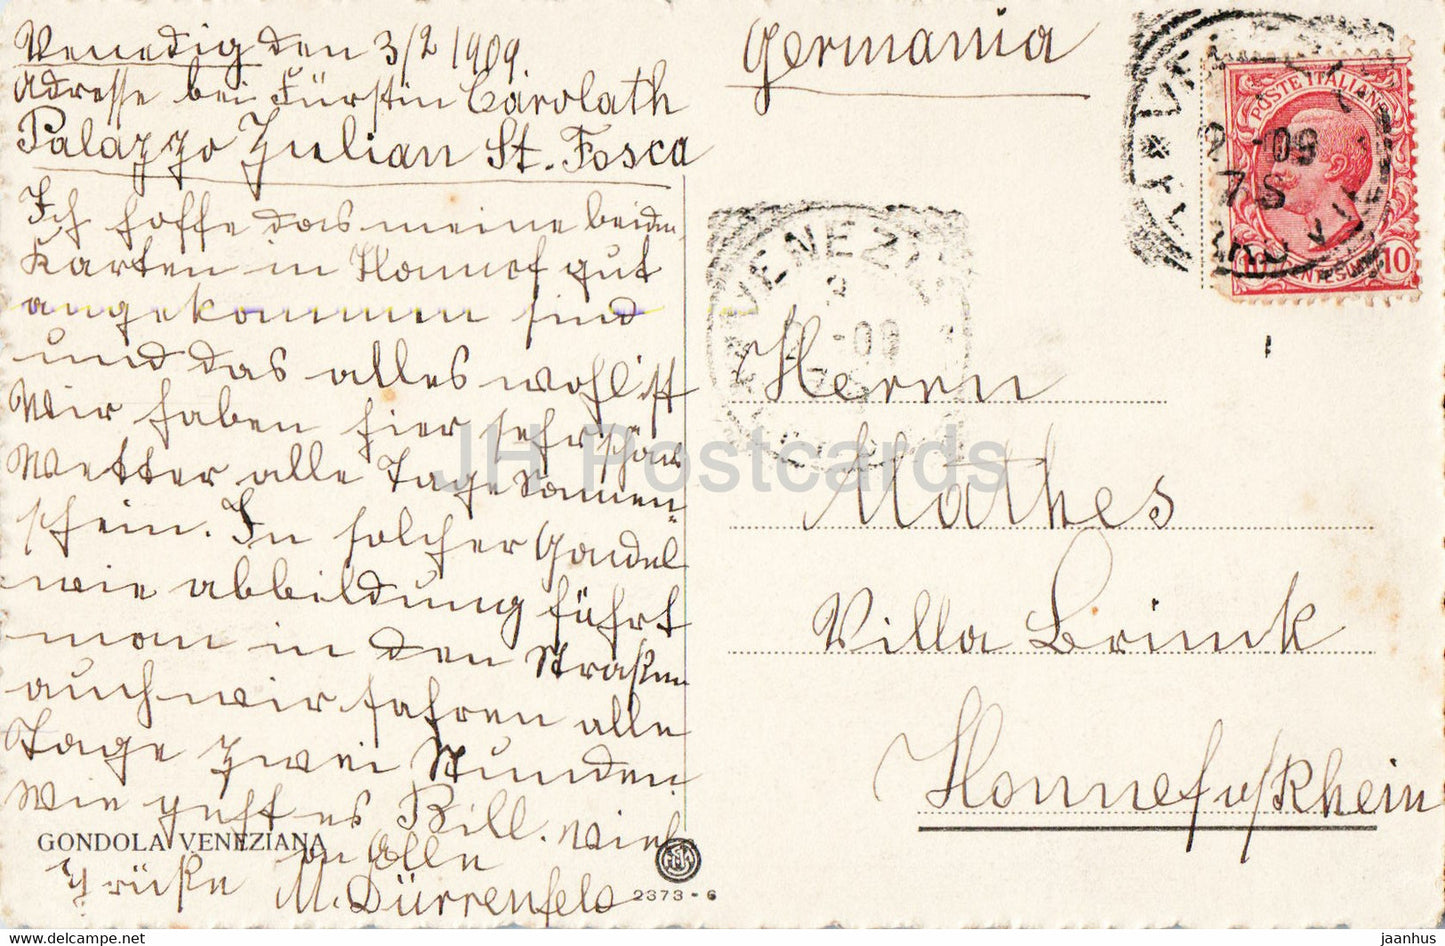 Venedig den 3/2 1909
Adresse bei Fürstin Carolath
Palazzo Julian St. Fosca
Ich hoffe das meine beiden
Karten in Honnef gut
angekommen sind
und das alles wohl ist
Wir haben hier sehr schön
Wetter alle Tage Sonnen-
schein. In solcher Gondel
wie abbildung fährt
man in den Straßen
auch wir fahren alle
Tage zwei Stunden
Wie geht es Bill. viele
Grüße an Alle
M. Dürrenfeld
GONDOLA VENEZIANA
2373-6
Germania
POSTE ITALIANE
10 CENTESIMI 10
VENEZIA
-09
7 S
VENEZIA
2
-09
Herrn
Mathes
Villa Brink
Honnef a/Rhein
JH Postcards
jaanhus